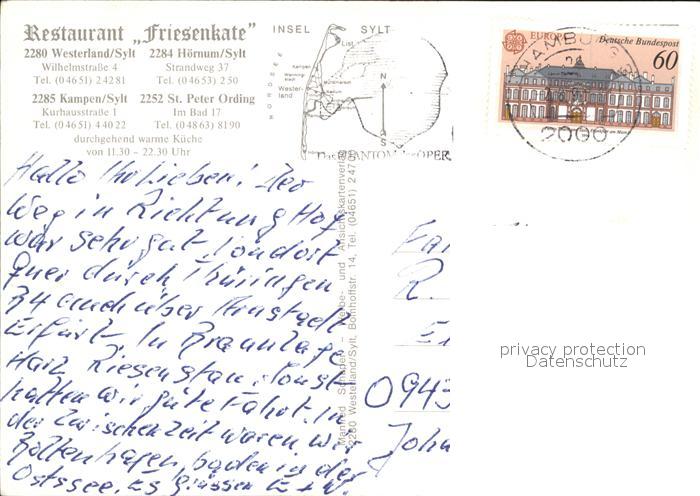 Restaurant „Friesenkate"
2280 Westerland/Sylt 2284 Hörnum/Sylt
Wilhelmstraße 4 Strandweg 37
Tel. (04651) 24281 Tel. (04653) 250
2285 Kampen/Sylt 2252 St. Peter Ording
Kurhausstraße 1 Im Bad 17
Tel. (04651) 44022 Tel. (04863) 8190
durchgehend warme Küche
von 11.30 - 22.30 Uhr
INSEL SYLT
NORDSEE
List
Kampen
Westerland
N
S
Das PHANTOM der OPER
EUROPA
Deutsche Bundespost
60
HAMBURG
2000
Hallo Ihr Lieben! Der
Weg in Richtung Hof
war sehr gut, von dort
quer durch Thüringen
B4 auch über Arnstadt
Erfurt. In Braunlage
Harz Riesenstau, sonst
hatten wir gute Fahrt. In
der Zwischenzeit waren wir
Boltenhagen, baden in der
Ostssee. Es grüssen E + W.
Manfred - Werbe- und Ansichtskartenverlag
2280 Westerland/Sylt, Bomhoffstr. 14, Tel. (04651)
Fa
R.
0943
John
privacy protection
Datenschutz